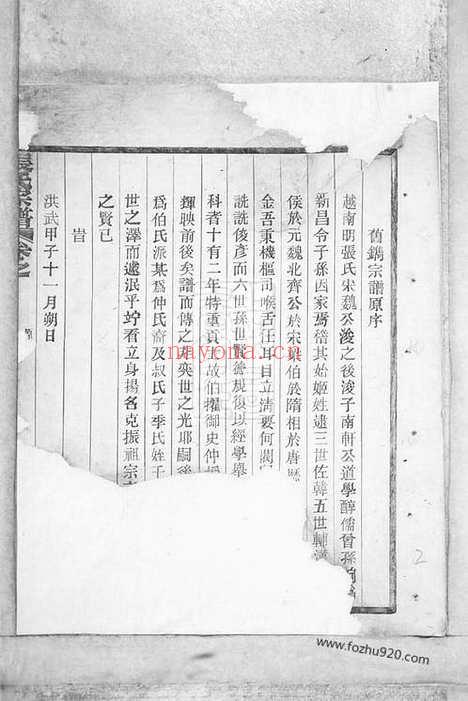 舊鐫宗譜原序
越南明張氏宋魏公浚之後浚子南軒公道學醇儒曾孫
新昌令子孫因家焉稽其始姬姓逮三世佐韓五世輔漢
侯於元魏北齊公於宋梁伯於隋相於唐
金吾秉機樞司喉舌任耳目立清要何閥
詵詵俊彥而六世孫世賢德規復以經學舉
科者十有二年特重貢士故伯擢御史仲
輝映前後矣譜而傳之其奕世之光耶嗣後
爲伯氏派某爲仲氏裔及叔氏子季氏姪千
世之澤而遽泯乎竚看立身揚名克振祖宗
之賢已
旹
洪武甲子十一月朔日
張氏宗譜 卷之
nayona.cn
2
www.fozhu920.com